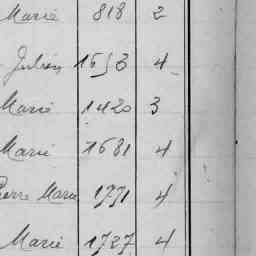 Marie 818 2
Julien 1653 4
Marie 1420 3
Marie 1681 4
Pierre Marie 1771 4
Marie 1727 4